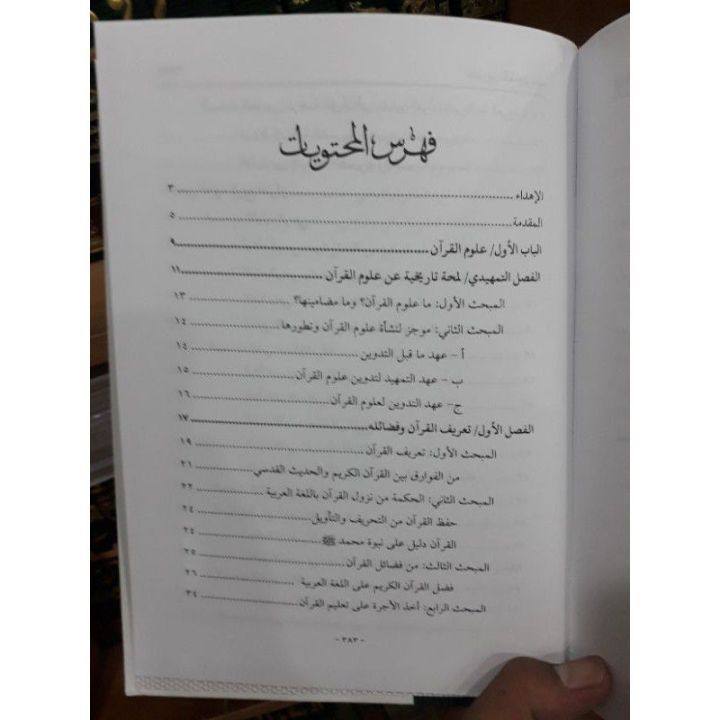 فهرس المحتويات
الإهداء ................ ٣
المقدمة ................ ٥
الباب الأول/ علوم القرآن ................ ٩
الفصل التمهيدي/ لمحة تاريخية عن علوم القرآن ................ ١١
المبحث الأول: ما علوم القرآن؟ وما مضامينها؟ ................ ١٣
المبحث الثاني: موجز لنشأة علوم القرآن وتطورها ................ ١٤
أ - عهد ما قبل التدوين ................ ١٤
ب - عهد التمهيد لتدوين علوم القرآن ................ ١٥
ج- عهد التدوين لعلوم القرآن ................ ١٦
الفصل الأول/ تعريف القرآن وفضائله ................ ١٧
المبحث الأول: تعريف القرآن ................ ١٩
من الفوارق بين القرآن الكريم والحديث القدسي ................ ٢١
المبحث الثاني: الحكمة من نزول القرآن باللغة العربية ................ ٢٢
حفظ القرآن من التحريف والتأويل ................ ٢٤
القرآن دليل على نبوة محمد ﷺ ................ ٢٤
المبحث الثالث: من فضائل القرآن ................ ٢٥
فضل القرآن الكريم على اللغة العربية ................ ٢٦
المبحث الرابع: أخذ الأجرة على تعليم القرآن ................ ٣٤
- ٣٨٣ -